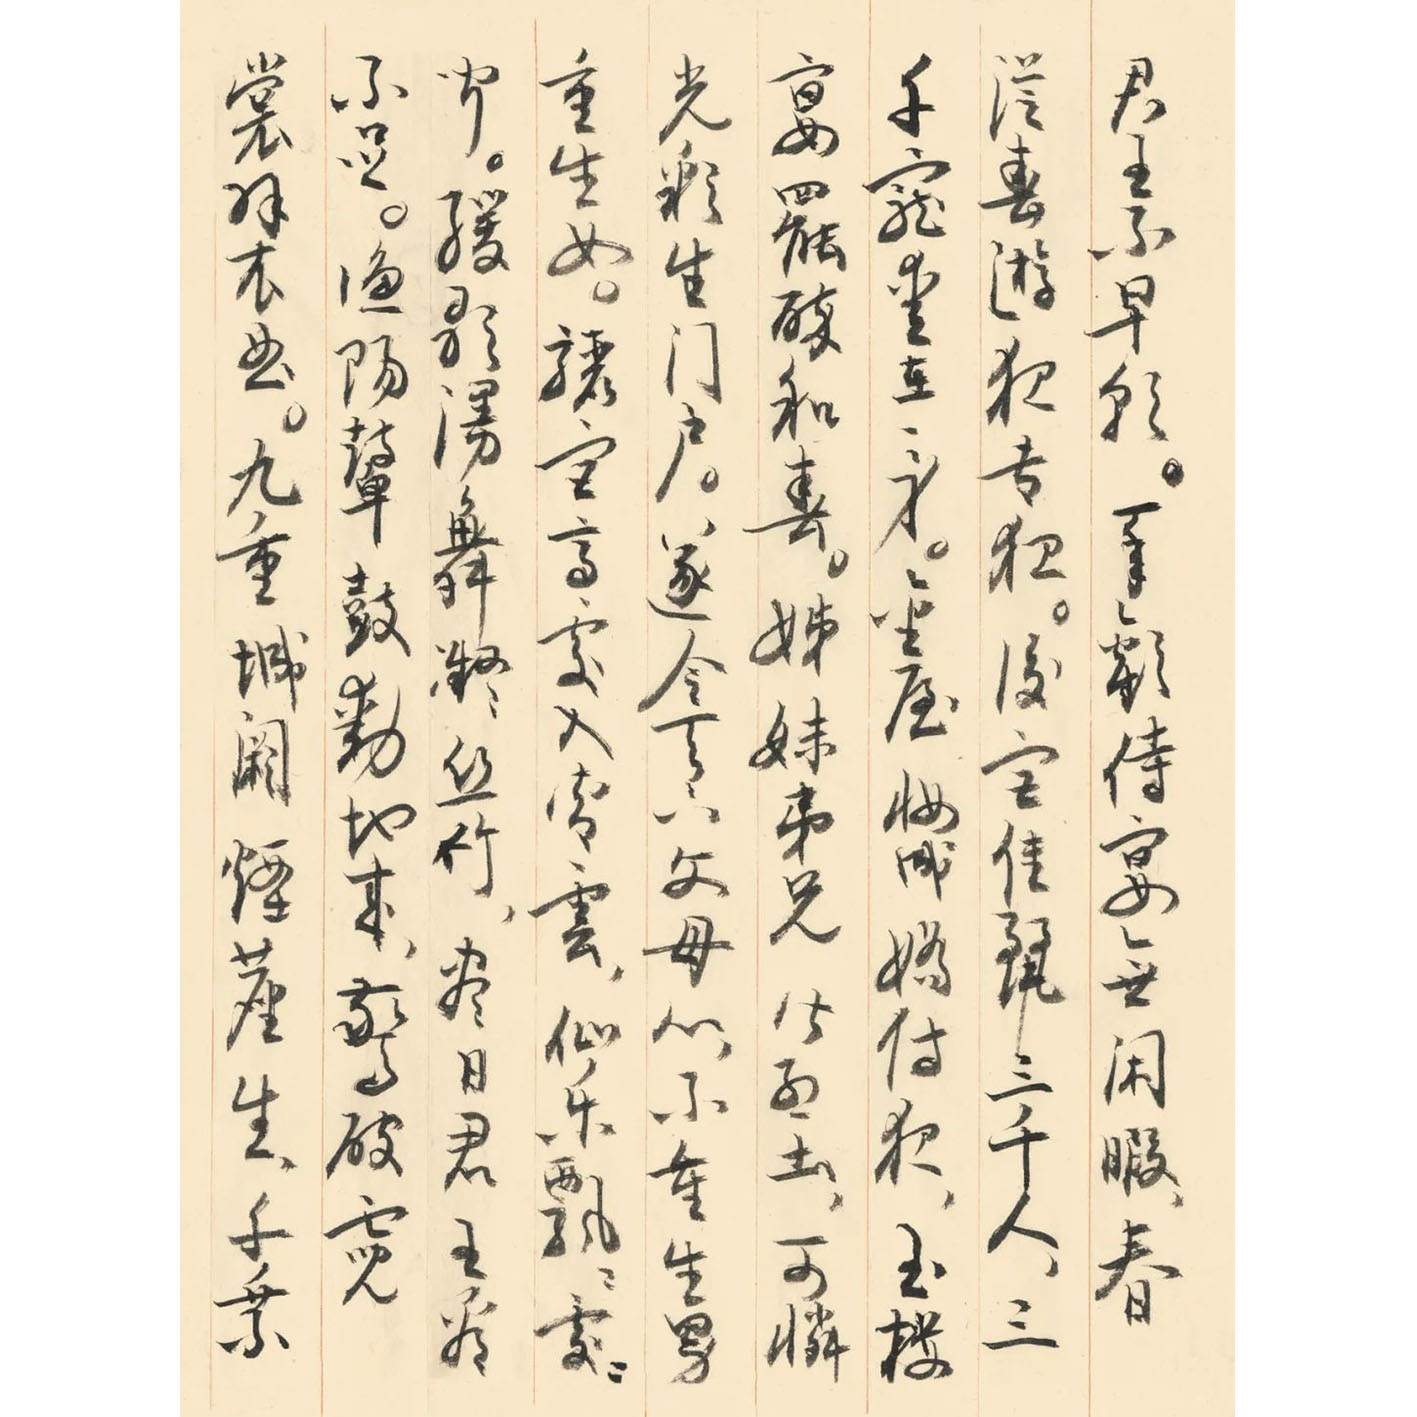 君王不早朝。承歡侍宴無闲暇、春
從春遊夜专夜。後宮佳麗三千人、三
千寵愛在一身。金屋妝成嬌侍夜、玉樓
宴罷醉和春。姊妹弟兄皆列土、可憐
光彩生门户。遂令天下父母心、不重生男
重生女。驪宮高處入青雲、仙乐飄〻處〻
闻。緩歌漫舞凝丝竹、尽日君王看
不足。漁陽鼙鼓動地来、驚破霓
裳羽衣曲。九重城闕煙塵生、千乘